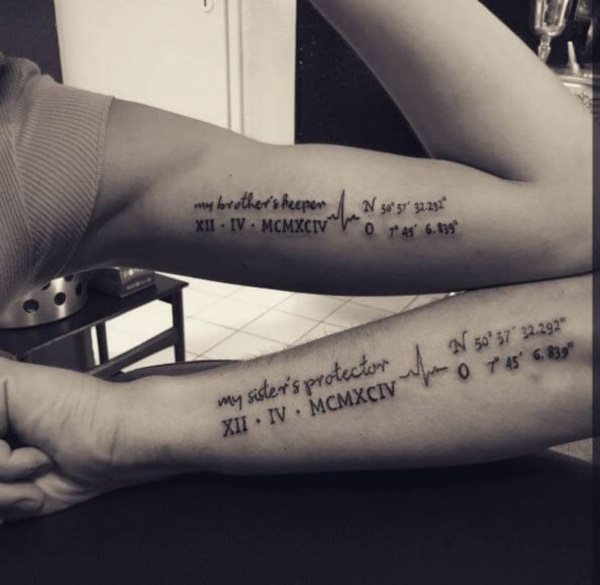 my brother's keeper
XII · IV · MCMXCIV
N 50° 57' 32.292"
O 7° 45' 6.839"
my sister's protector
XII · IV · MCMXCIV
N 50° 57' 32.292"
O 7° 45' 6.839"